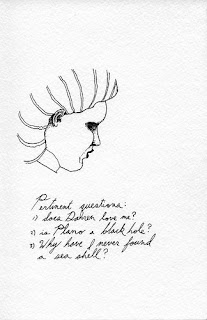 Pertinent questions:
1) does Darren love me?
2) is Plano a black hole?
3) Why have I never found
a sea shell?